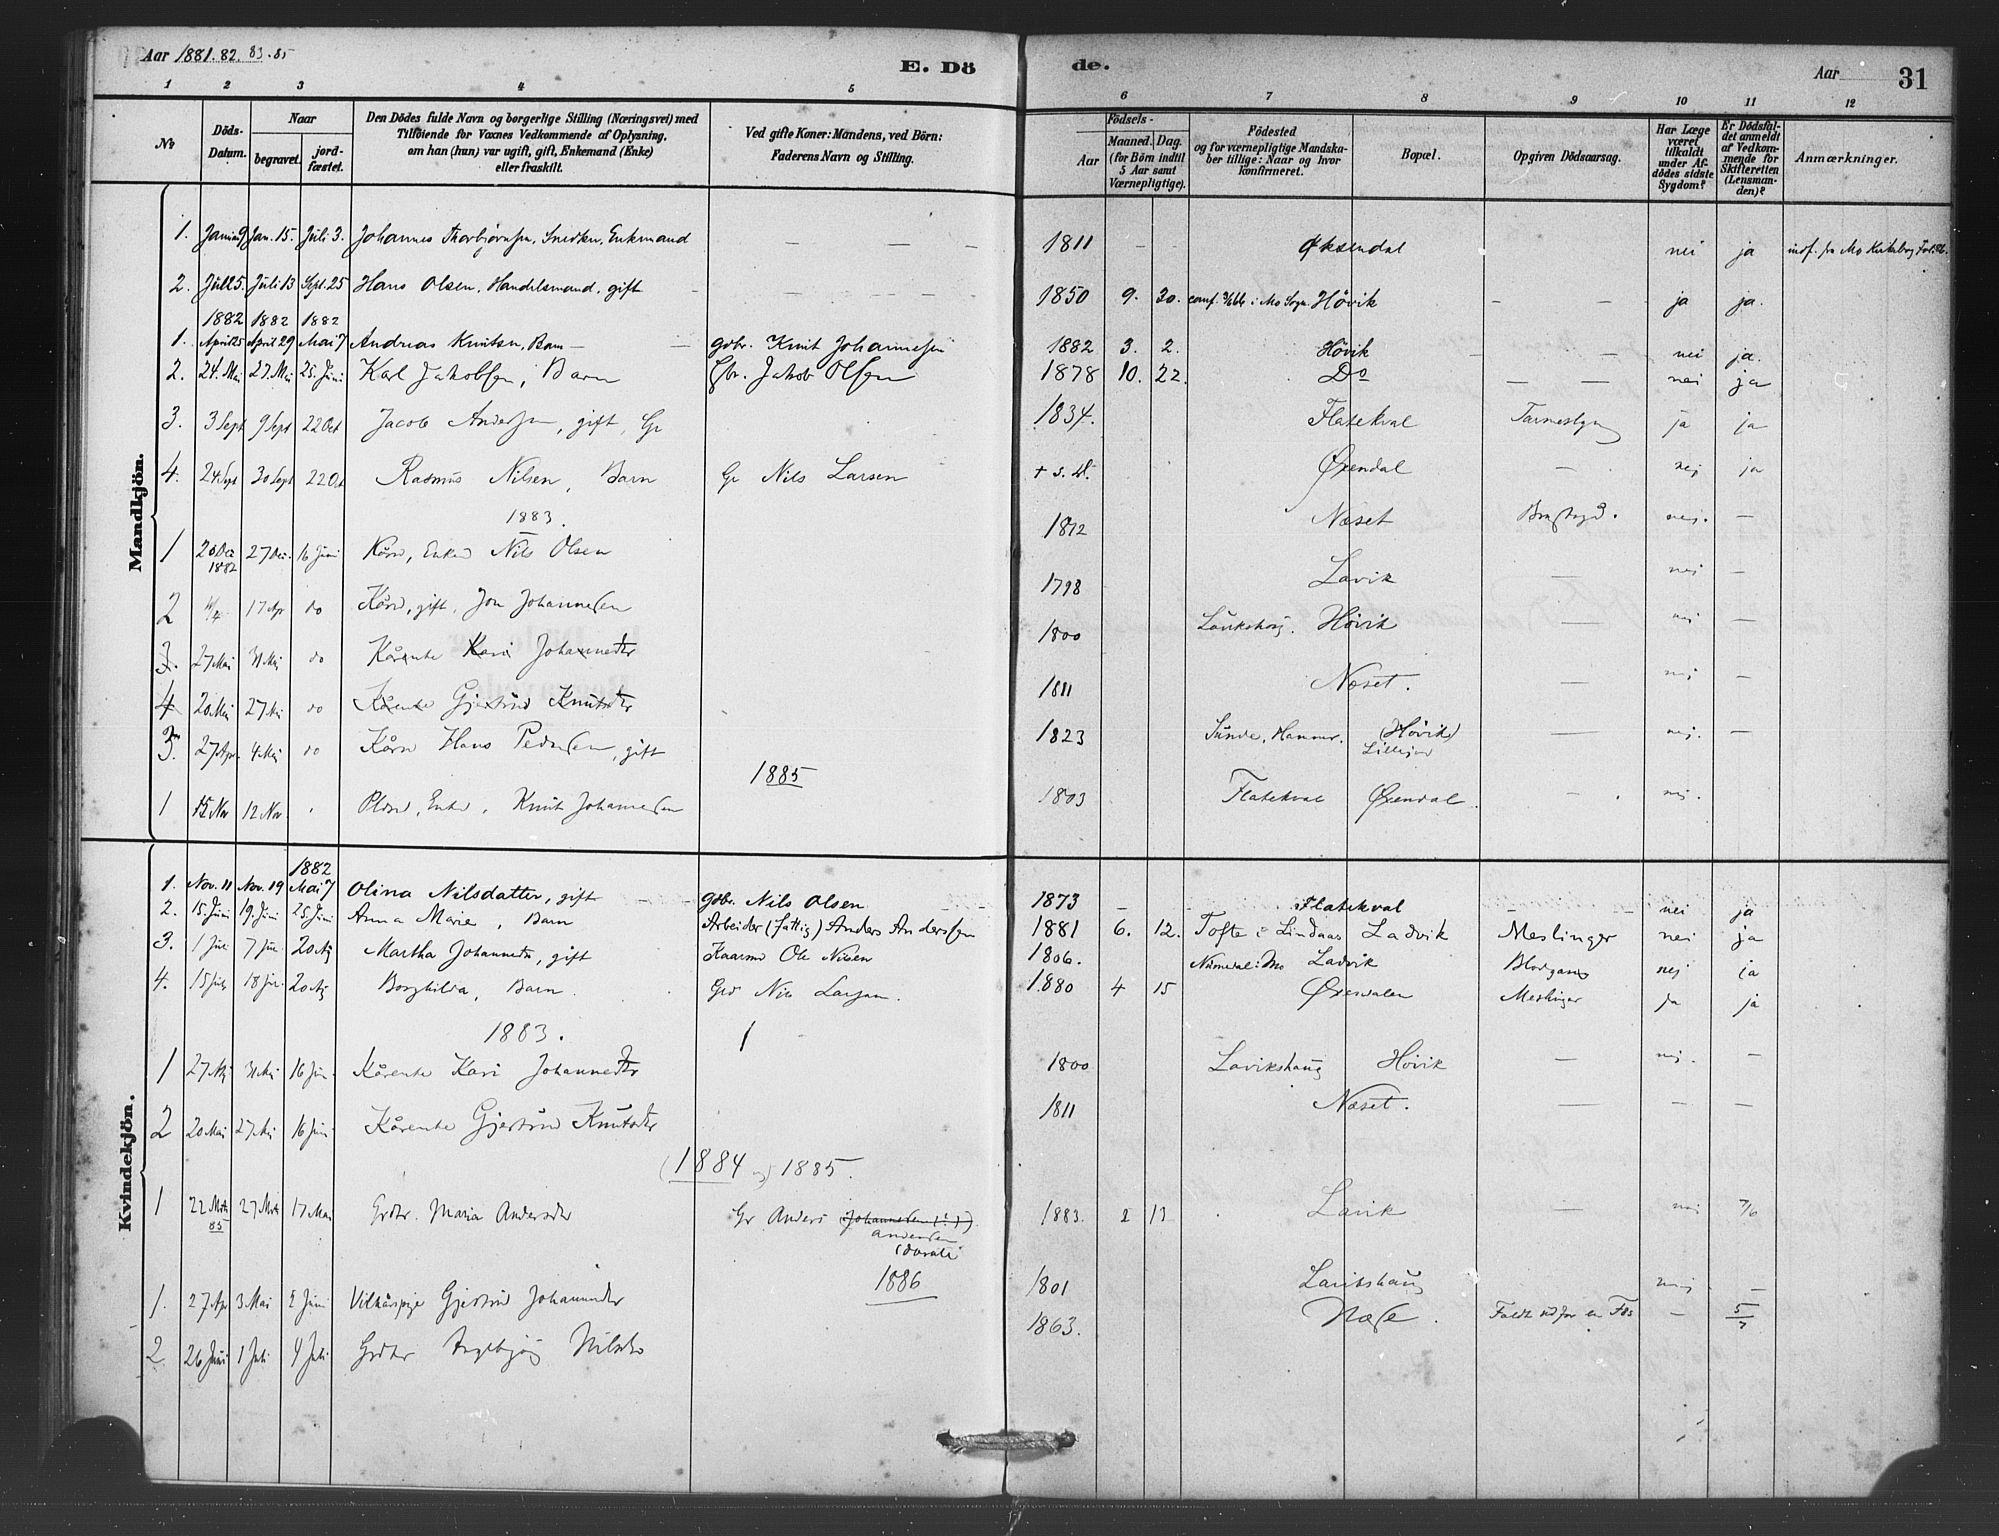 Aar 1881. 82. 83. 85
E. Dö
de.
Aar
31
1 2 3 4 5 6 7 8 9 10 11 12
No
Döds-Datum.
Naar
begravet.
jord-fæstet.
Den Dödes fulde Navn og borgerlige Stilling (Næringsvei) med
Tilföiende for Voxnes Vedkommende af Oplysning,
om han (hun) var ugift, gift, Enkemand (Enke)
eller fraskilt.
Ved gifte Koner: Mandens, ved Börn:
Faderens Navn og Stilling.
Födsels-
Aar
Maaned. Dag.
(for Börn indtil
5 Aar samt
Værnepligtige).
Födested
og for værnepligtige Mandska-
ber tillige: Naar og hvor
konfirmeret.
Bopæl.
Opgiven Dödsaarsag.
Har Læge
været
tilkaldt
under Af-
dödes sidste
Sygdom?
Er Dödsfal-
det anmeldt
af Vedkom-
mende for
Skifteretten
(Lensman-
den)?
Anmærkninger.
Mandkjön.
1. Januar 9 Jan. 15. Juli 3. Johannes Thorbjørnsen, Snedker, Enkemand — — — 1811 — — Øksendal nei ja indf. fra Mo Kirkebog
2. Juli 5. Juli 13 Sept. 25 Hans Olsen, Handelsmand, gift — — — 1850 9. 20. conf. i Mo Sogn Høvik — — ja ja.
1882 1882 1882
1. April 25 April 29 Mai 7 Andreas Knutsen, Barn — gdbr. Knut Johannesen 1882 3. 2. Høvik — nei ja.
2. 24. Mai 27. Mai 25. Juni Karl Jakobsen, Barn Gbr. Jakob Olsen 1878 10. 22. Do — — nei ja
3. 3 Sept 9 Sept 22 Oct Jacob Andersen, gift, Gr 1834. Flatekval ja ja
4. 24 Sept 30 Sept 22 Oct Rasmus Nilsen, Barn Gr Nils Larsen Øxendal — nej ja
1883.
1 20 Dec 1882 27 Dec. 16 Juni Kårm, Enkem Nils Olsen 1812 Næset nej. —
2 17 Apr do Kårm, gift, Jon Johannesen 1798 Lavik — nej —
3. 27 Mai 31 Mai do Kårenke Kari Johannedtr 1800 Lavikshaug. Høvik — nej —
4 20 Mai 27 Mai do Kårenke Gjertrud Knutsdtr 1811 Næset. — nej —
3. 27 Apr. 4 Mai do Kårm Hans Pedersen, gift 1823 Sunde, Hammer. (Høvik) — nej. —
1885
1 12 Nov Knut Johannesen 1803 Flatekval Øxendal. — nej.
Kvindekjön.
1882
1. Nov. 11 Nov. 19 Mai 7 Olina Nilsdatter, gift gdbr. Nils Olsen 1873 — Flatekval — — nei ja
2. 15. Juni 19. Juni 25. Juni Anna Marie, Barn Arbeider (fattig) Anders Anderssen 1881 6. 12. Tofte i Lindaas Ladvik Meslinger nei ja
3. 1 Jul 7 Jul 20 Aug Martha Johannedtr, gift Kaarmd Ole Nilsen 1806. Ladvik nej ja
4. 15 Juli 18 Jul. 20 Aug Borghilda, Barn. Grd Nils Larsen. 1880 4 15 Øxendalen Meslinger ja ja
1883.
1 27 Maj 31 Mai 16 Juni Kårenke Kari Johannedtr 1800 Lavikshaug Høvik — nej. —
2 20 Mai 27 Mai 16 Juni Kårenke Gjertrud Knutsdtr 1811 Næset. — — —
(1884 og) 1885.
1 22 Marts 85 27 Marts 17 Mai Grdtr. Maria Andersdtr Gr Anders Johannesen (?) Andersen 1883. 2 13 Lavik nei 7/6
1886
1. 27 Apr 3 Mai 2 Juni Gjertrud Johannesdtr 1801 Lavikshaug nej —
2. 26 Juni 1 Juli 4 Juli Grdtr Ingebjørg Nilsdtr 1863. Næse. Faldt ud for en Fos — 5/7